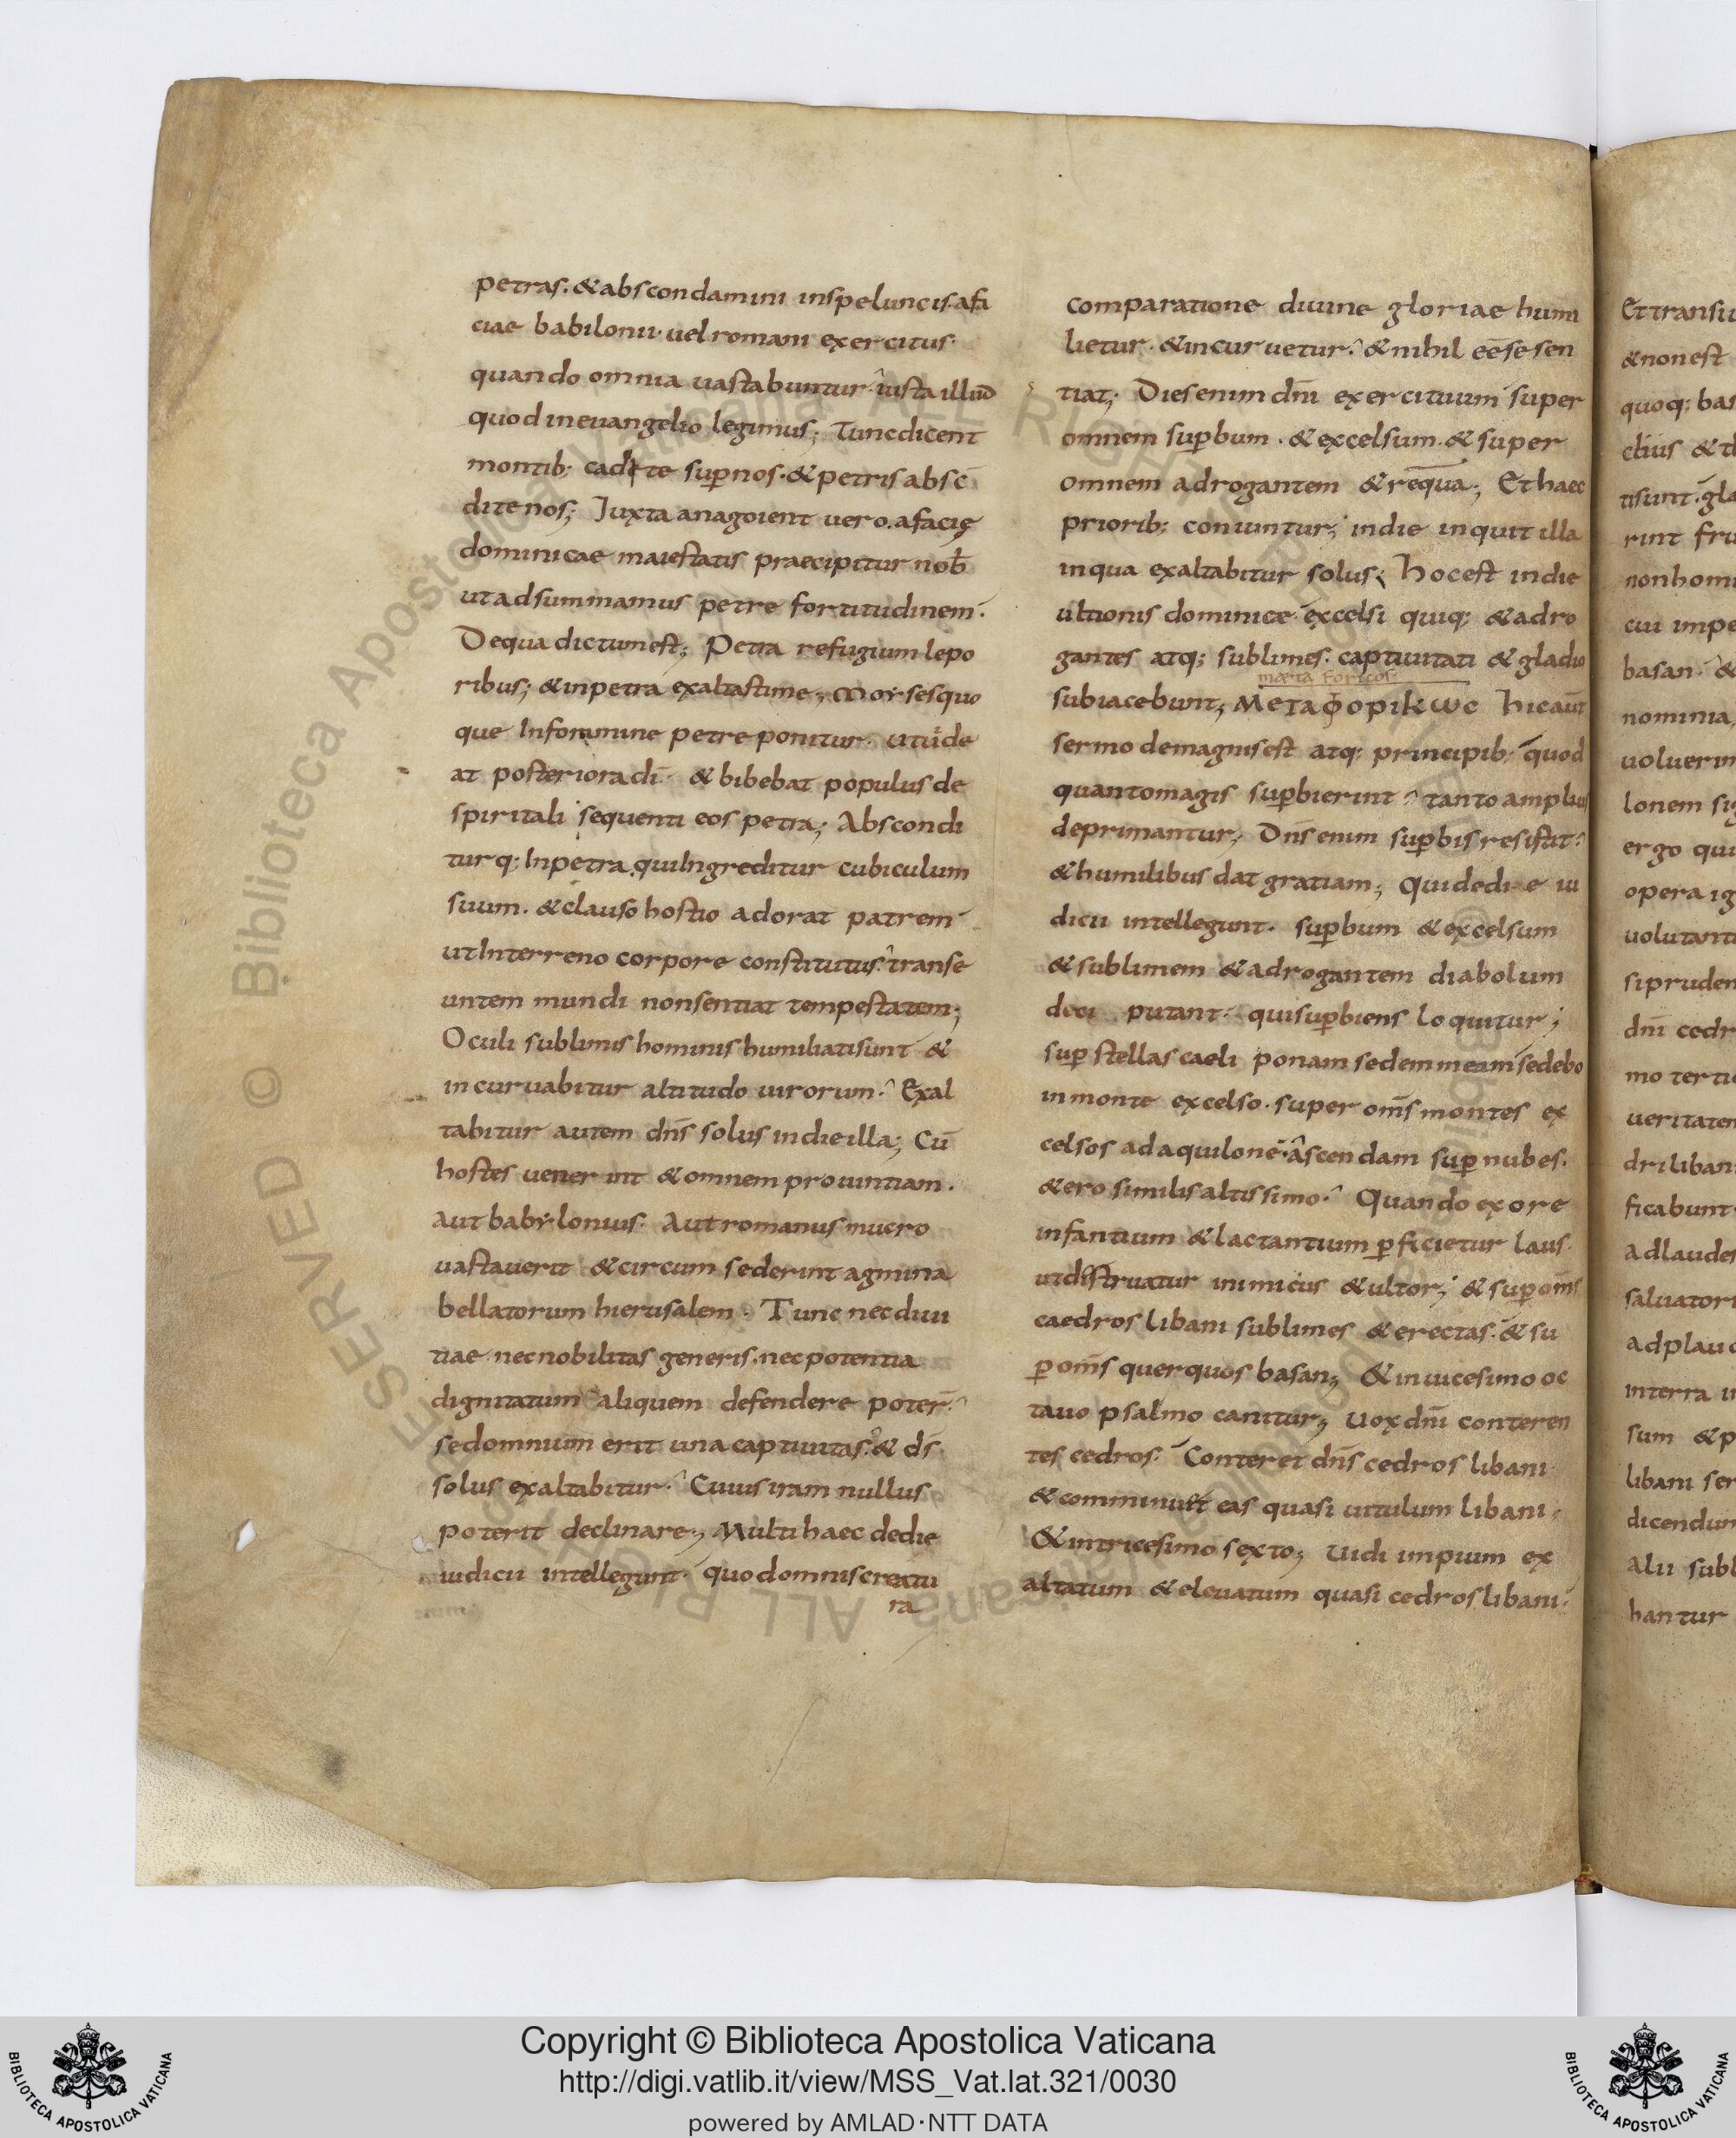 petras. & abscondamini inspeluncis. afa
ciae babilonii. uel romani exercitus.
quando omnia uastabuntur. iusta illud
quod ineuangelio legimus; Tuncdicent
montib; cadete sup nos. & petris absc̄
dite nos; Juxta anagoient uero. afacie
dominicae maiestatis praecipitur nob̄
utadsummamus petre fortitudinem.
Dequa dictumest; Petra refugium lepo
ribus; & inpetra exaltastime; Moysesquo
que Inforamine petre ponitur. utuide
at posteriora dī. & bibebat populus de
spiritali sequenti eos petra; Abscondi
turq; Inpetra quiIngreditur cubiculum
suum. & clauso hostio adorat patrem
utInterreno corpore constitutus. transe
untem mundi nonsentiat tempestatem;
Oculi sublimis hominis humiliatisunt &
incuruabitur altitudo uirorum. Exal
tabitur autem dn̄s solus indieilla; Cū
hostes uenerint & omnem prouintiam.
Aut babylonius. Aut romanus mucro
uastauerit & circum sederint agmina
bellatorum hierusalem. Tunc nec diui
tiae nec nobilitas generis. nec potentia
dignitatum aliquem defendere poter̄.
sedomnium erit una captiuitas. & ds̄
solus exaltabitur. Cuius iram nullus
poterit declinare; Multi haec dedie
iudicii intellegunt. quodomniscreatu
ra
comparatione diuine gloriae humi
lietur. & incuruetur. & nihil eēse sen
tiat; Diesenim dn̄i exercituum super
omnem supbum. & excelsum. & super
omnem adrogantem & reqūa; Ethaec
priorib; coniuntur; indie inquit illa
inqua exaltabitur solus; Hocest indie
ultionis dominice excelsi quiq; & adro
gantes atq; sublimes. captiuitati & gladio
mæta foricos
subiacebunt; ΜΕΤΑΦΟΡΙΚWC hicaūt
sermo demagnisest atq; principib; quod
quantomagis supbierint tanto amplius
deprimantur; Dn̄s enim supbis resistit
& humilibus dat gratiam; Qui dedi e iu
dicii intellegunt. supbum & excelsum
& sublimem & adrogantem diabolum
dici putant. quisupbiens loquitur;
sup stellas caeli ponam sedem meam sedebo
inmonte excelso. super om̄s montes ex
celsos adaquilonē. ascendam sup nubes.
& ero similis altissimo. Quando exore
infantium & lactantium pficietur laus.
utdistruatur inimicus & ultor; & sup om̄s
caedros libani sublimes & erectas. & su
p om̄s querquos basan; & inuicesimo oc
tauo psalmo canitur; Uox dn̄i conteren
tes cedros. Conteret dn̄s cedros libani
& comminuet eas quasi uitulum libani.
& intricesimo sexto; Uidi impium ex
altatum & eleuatum quasi cedros libani.
Ettransiu
& nonest
quoq; bas
tisunt. gla
rint fru
nonhomi
cui impe
basan. &
nominia
uoluerin
lonem sig
ergo qui
opera ig
uolutant
sipruden
dn̄i cedr
mo tertio
ueritatem
drilibani
ficabunt
adlaudes
saluatori
adplauc
interra i
sum & p
libani ser
dicendum
alii subl
bantur
Copyright © Biblioteca Apostolica Vaticana
http://digi.vatlib.it/view/MSS_Vat.lat.321/0030
powered by AMLAD·NTT DATA
BIBLIOTECA APOSTOLICA VATICANA
BIBLIOTECA APOSTOLICA VATICANA